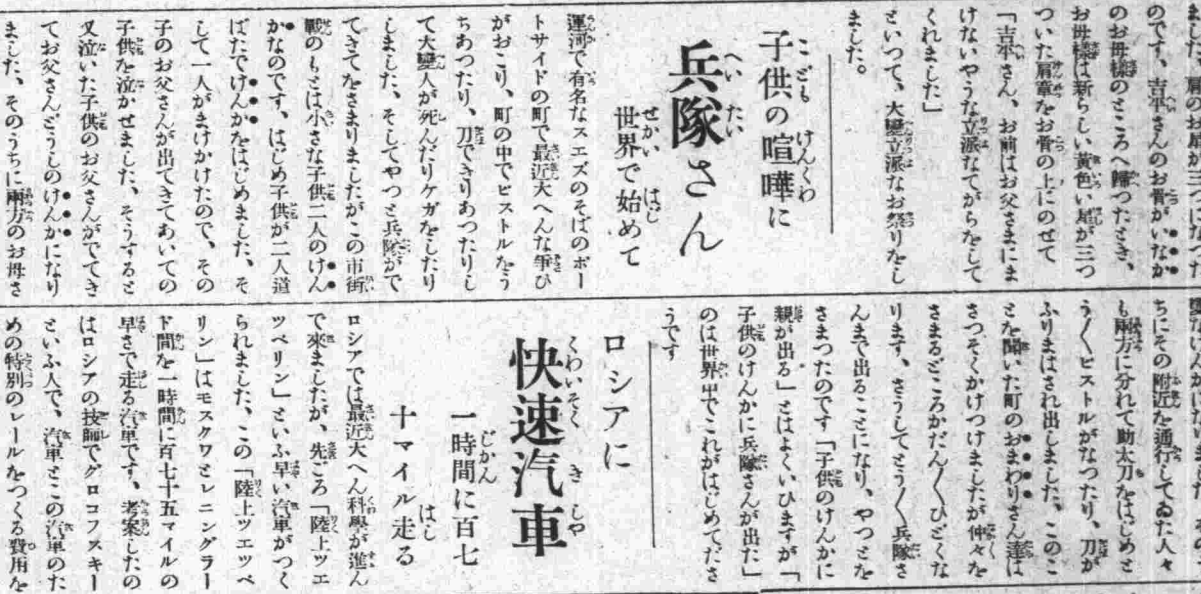 のです、吉平さんのお骨がいなか
のお母樣のところへ歸つたとき、
お母樣は新らしい黄色い星が三つ
ついた肩章をお骨の上にのせて
「吉平さん、お前はお父さまにま
けないやうな立派なてがらをして
くれました」
といつて、大變立派なお祭りをし
ました。
子供の喧嘩に
兵隊さん
世界で始めて
運河で有名なスエズのそばのポー
トサイドの町で最近大へんな爭ひ
がおこり、町の中でピストルをう
ちあつたり、刀できりあつたりし
て大變人が死んだりケガをしたり
しました、そしてやつと兵隊がで
てきてをさまりましたがこの市街
戰のもとは小さな子供二人のけん
かなのです、はじめ子供が二人道
ばたでけんかをはじめました、そ
して一人がまけかけたので、その
子のお父さんが出てきてあいての
子供を泣かせました、そうすると
又泣いた子供のお父さんがでてき
てお父さんどうしのけんかになり
ました、そのうちに兩方のお母さ
ちにその附近を通行してゐた人々
も兩方に分れて助太刀をはじめと
う〳〵ピストルがなつたり、刀が
ふりまはされ出しました、このこ
とを聞いた町のおまわりさん達は
さつそくかけつけましたが仲々を
さまるどころかだん〳〵ひどくな
ります、さうしてとう〳〵兵隊さ
んまで出ることになり、やつとを
さまつたのです「子供のけんかに
親が出る」とはよくいひますが「
子供のけんかに兵隊さんが出た」
のは世界中でこれがはじめてださ
うです
ロシアに
快速汽車
一時間に百七
十マイル走る
ロシアでは最近大へん科學が進ん
で來ましたが、先ごろ「陸上ツエ
ツペリン」といふ早い汽車がつく
られました、この「陸上ツエッペ
リン」はモスクワとレニングラー
ド間を一時間に百七十五マイルの
早さで走る汽車です、考案したの
はロシアの技師でグロコフスキー
といふ人で、汽車とこの汽車のた
めの特別のレールをつくる費用を